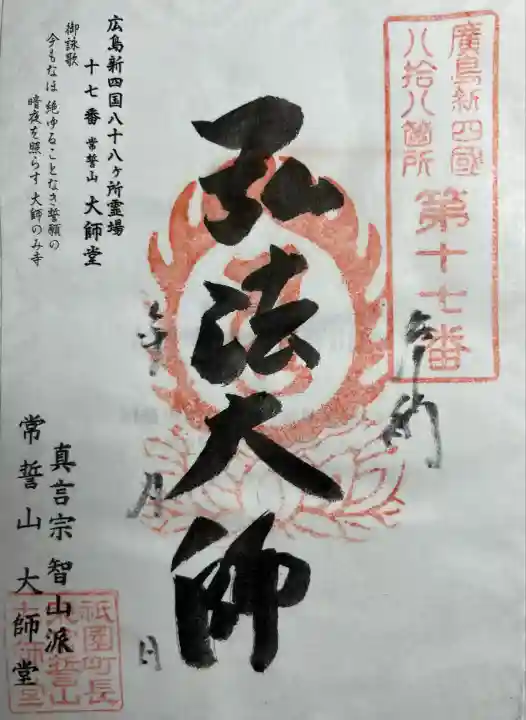 廣島新四國
八拾八箇所
第十七番
奉納
弘法大師
年
月
日
広島新四国八十八ヶ所霊場
十七番 常誓山 大師堂
御詠歌
今もなほ 絶ゆることなき誓願の
暗夜を照らす 大師のみ寺
真言宗 智山派
常誓山 大師堂
祇園町長
束常誓山
大師堂